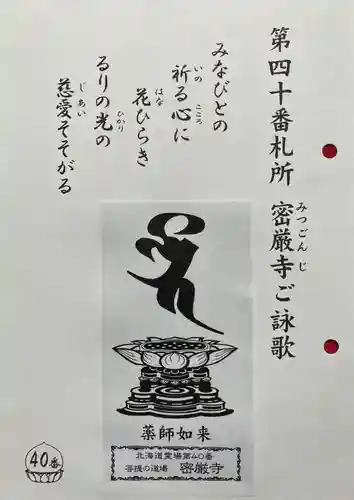 第四十番札所 密厳寺ご詠歌
みつごんじ
みなびとの
祈る心に
いの こころ
花ひらき
はな
るりの光の
ひかり
慈愛そそがる
じあい
薬師如来
北海道霊場第40番
菩提の道場 密厳寺
40番